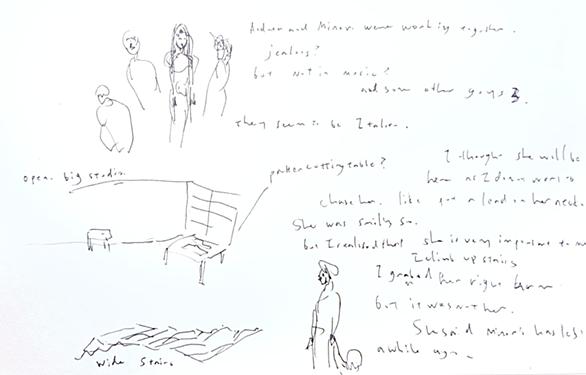 and Minori were working together.
jealous?
but not in music?
and some other guys 3.
they seem to be Italian.
open. big studio.
pattern cutting table?
I thought she will be
here as I don't want to
chase her. like put a lead on her neck.
She was smiling so.
but I realised that she is very important to me
I climb up stairs
I grabed her right arm
but it was not her.
She said Minori has left
a while ago.
Wide stairs